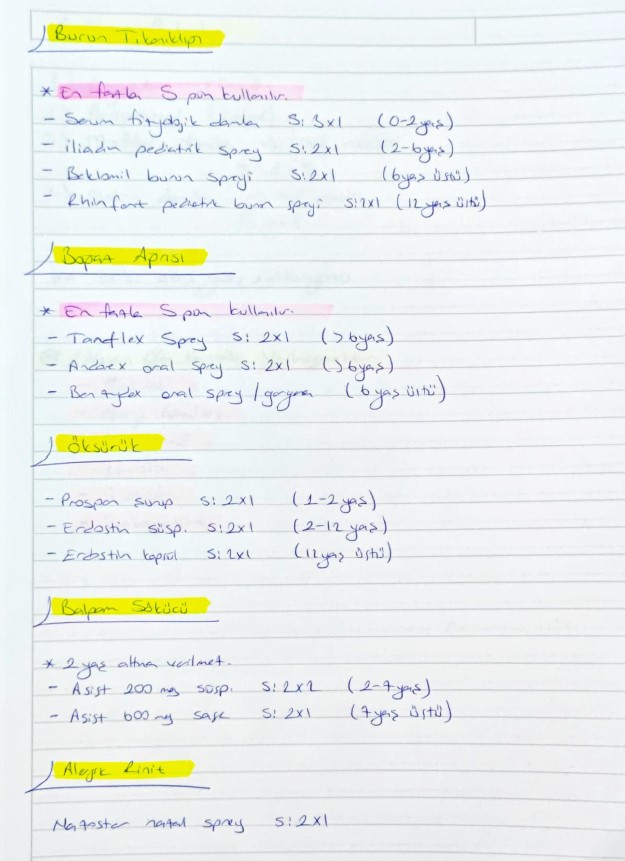 Burun Tıkanıklığı
* En fazla 5 gün kullanılır.
- Serum fizyolojik damla S: 3x1 (0-2 yaş)
- İliadin pediatrik sprey S: 2x1 (2-6 yaş)
- Beklamil burun spreyi S: 2x1 (6 yaş üstü)
- Rhinfant pediatrik burun spreyi S: 2x1 (12 yaş üstü)
Boğaz Ağrısı
* En fazla 5 gün kullanılır.
- Tanflex Sprey S: 2x1 (>6 yaş)
- Andorex oral sprey S: 2x1 (>6 yaş)
- oral sprey / gargara (6 yaş üstü)
Öksürük
- Prospan şurup S: 2x1 (1-2 yaş)
- Erdostin süsp. S: 2x1 (2-12 yaş)
- Erdostin kapsül S: 2x1 (12 yaş üstü)
Balgam Sökücü
* 2 yaş altına verilmez.
- Asist 200 mg süsp. S: 2x2 (2-7 yaş)
- Asist 600 mg saşe S: 2x1 (7 yaş üstü)
Alerjik Rinit
Nazoster nazal sprey S: 2x1